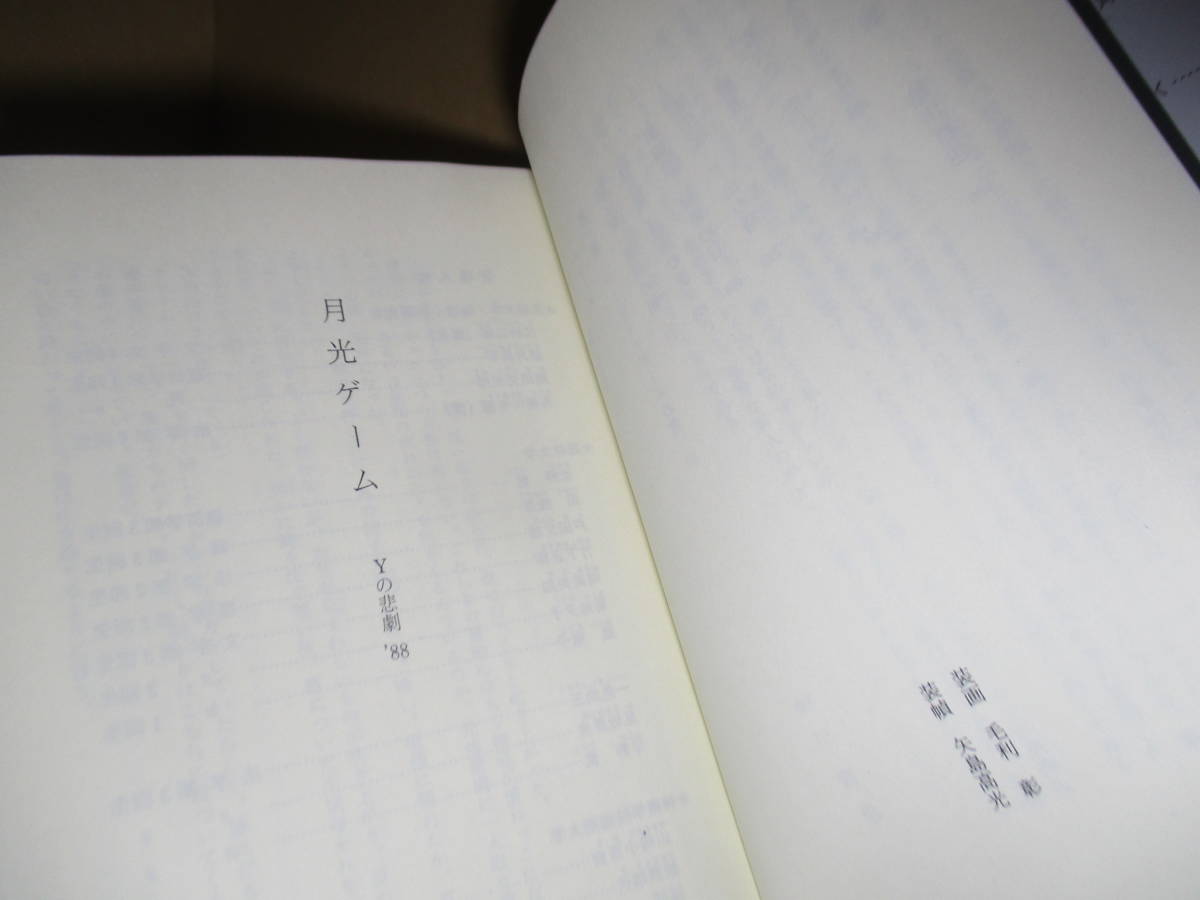 装画 毛利 彰
装幀 矢島高光
月光ゲーム
Yの悲劇 '88